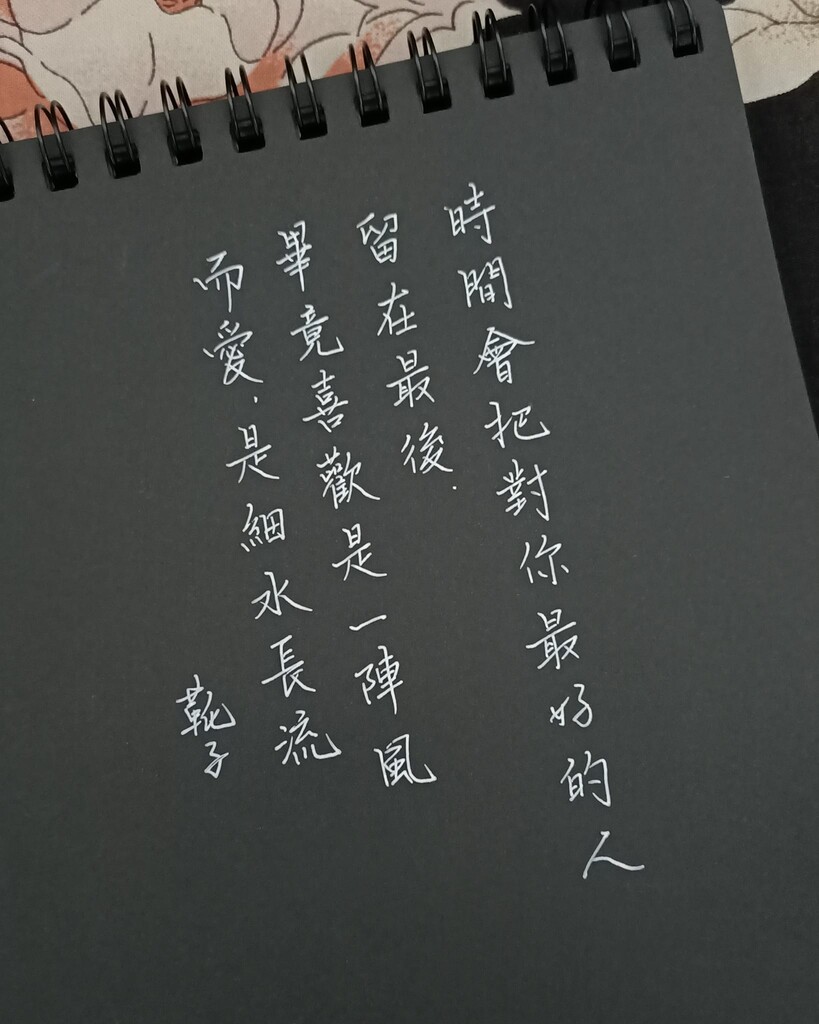 時間會把對你最好的人
留在最後.
畢竟喜歡是一陣風
而愛,是細水長流
靴子